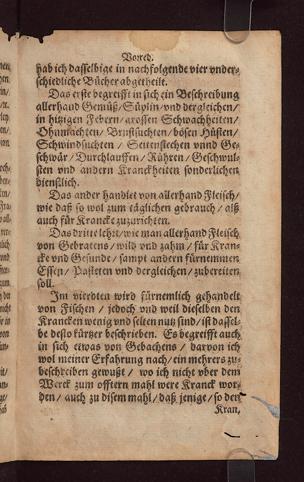 Vorred.
hab ich dasselbige in nachfolgende vier vnder-
schiedliche Bücher abgetheilt.
Das erste begreifft in sich ein Beschreibung
allerhand Gemüß/ Süplin vnd dergleichen/
in hitzigen Febern/ grossen Schwachheiten/
Ohnmachten/ Brustsuchten/ bösen Hüsten/
Schwindsuchten / Seitenstechen vnnd Ge-
schwär/ Durchlauffen/ Rühren/ Geschwul-
sten vnd andern Kranckheiten sonderlichen
dienstlich.
Das ander handlet von allerhand Fleisch/
wie daß so wol zum täglichen gebrauch/ alß
auch für Krancke zuzurichten.
Das dritte lehrt/ wie man allerhand Fleisch
von Gebratens/ wild vnd zahm/ für Kran-
cke vnd Gesunde/ sampt andern fürnemmen
Essen/ Pasteten vnd dergleichen/ zubereiten
soll.
Im vierdten wird fürnemlich gehandelt
von Fischen / jedoch vnd weil dieselben den
Krancken wenig vnd selten nutz sind/ ist dassel-
be desto kürtzer beschrieben. Es begreifft auch
in sich etwas von Gebachens / darvon ich
wol meiner Erfahrung nach/ ein mehrers zu-
beschreiben gewußt / wo ich nicht vber dem
Werck zum offtern mahl were Kranck wor-
den/ auch zu disem mahl/ daß jenige/ so den
Kran,